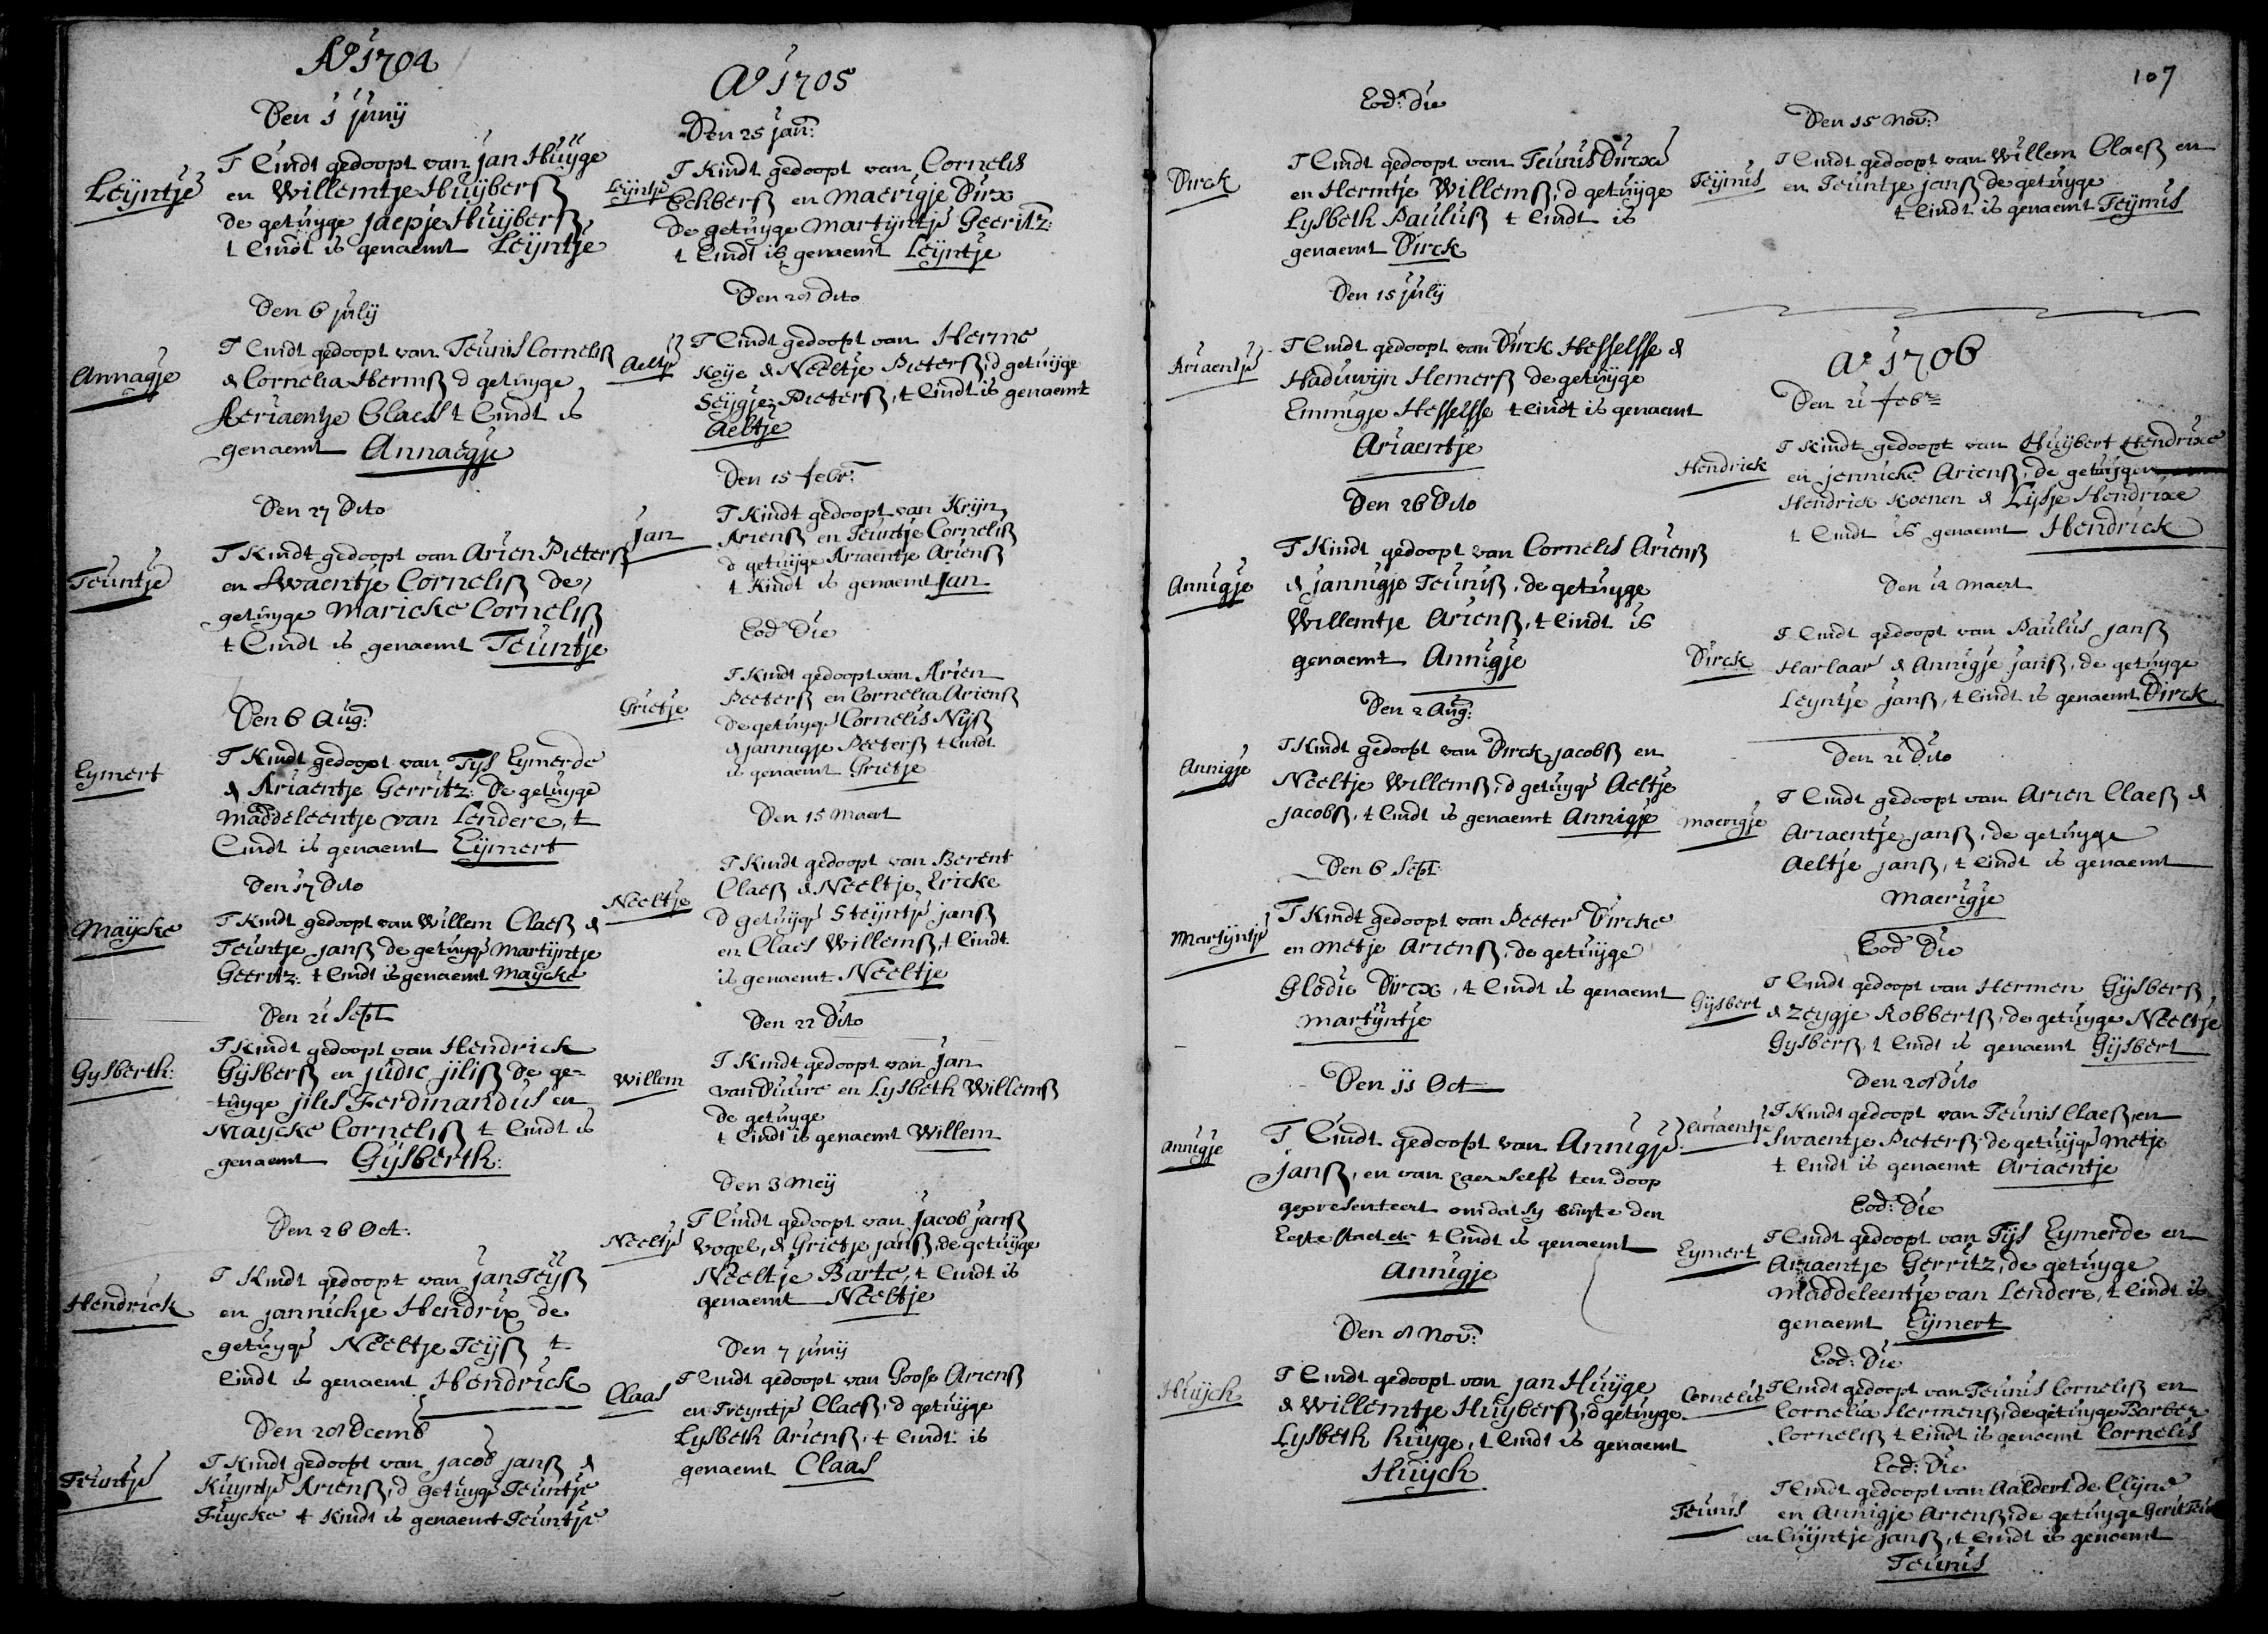 Ao 1704
Den 1 junij
Leijntje
T Cindt gedoopt van Jan Huijge
en Willemtje Huijberß
de getuyge Jaepje Huijberß
t Cindt is genaemt Leijntje
Den 6 julij
Annagje
T Cindt gedoopt van Teunis Cornelß
& Cornelia Hermß d getuyge
Aeriaentje Claess t Cindt is
genaemt Annaegje
Den 27 Dito
Teuntje
T Kindt gedoopt van Arien Pieterß
en Swaentje Cornelß de
getuyge Maricke Cornelß
t Cindt is genaemt Teuntje
Den 6 Aug:
Eymert
T Kindt gedoopt van Tys Eymerde
& Ariaentje Gerritz: De getuyge
Maddeleentje van Lendere, t
Cindt is genaemt Eijmert
Den 17 Dito
Maycke
T Kindt gedoopt van Willem Claeß &
Teuntje janß de getuyge Martijntje
Geeritz: t Cindt is genaemt Maycke
Den 21 Sept
Gysberth:
T Kindt gedoopt van Hendrick
Gijsberß en judic jiliß de ge-
tuyge jilis Ferdinandus en
Maycke Corneliß t Cindt is
genaemt Gijsberth:
Den 26 Oct:
Hendrick
T Kindt gedoopt van jan Teijß
en jannichje Hendrix de
getuyge Neeltje Teijß t
Cindt is genaemt Hendrick
Den 28 Decemb
Teuntje
T Kindt gedoopt van jacob janß &
Kuyntje Arienß, d getuyge Teuntje
Fuycke t Kindt is genaemt Teuntje
Ao 1705
Den 25 jan:
Leijntje
T Kindt gedoopt van Cornelis
Echberß en Maerigje Dirx
De getuyge Martijntje Geeritz:
t Cindt is genaemt Leijntje
Den 28 Dito
Aeltje
T Cindt gedoopt van Herme
Koije & Neeltje Pieterß, d getuijge
Seijgje Pieterß, t Cindt is genaemt
Aeltje
Den 15 febr:
Jan
T Kindt gedoopt van Krijn
Arienß en Teuntje Corneliß
d getuijge Ariaentje Arienß
t Kindt is genaemt Jan
Eod Die
Grietje
T Kindt gedoopt van Arien
Peeterß en Cornelia Arienß
De getuyge Cornelis Nijß
& jannigje Peeterß t Cindt
is genaemt Grietje
Den 15 Maert
Neeltje
T Kindt gedoopt van Berent
Claeß & Neeltje Ericke
d getuijge Steijntje janß
en Claes Willemß, t Cindt
is genaemt Neeltje
Den 22 Dito
Willem
T Kindt gedoopt van Jan
van Duure en Lysbeth Willemß
De getuyge
t Cindt is genaemt Willem
Den 3 Meij
Neeltje
T Cindt gedoopt van Jacob janß
Vogel, & Grietje janß, de getuijge
Neeltje Barte, t Cindt is
genaemt Neeltje
Den 7 junij
Claas
T Cindt gedoopt van Goose Arienß
en Treyntje Claeß, d getuijge
Lysbeth Arienß, t Cindt is
genaemt Claas
Eod: die
Dirck
T Cindt gedoopt van Teunis Dircx
en Hermtje Willemß, d getuijge
Lysbeth Pauluß t Cindt is
genaemt Dirck
Den 15 julij
Ariaentje
T Cindt gedoopt van Dirck Hesselsse &
Haduwijn Hemerß de getuijge
Emmigje Hesselsse t cindt is genaemt
Ariaentje
Den 26 Dito
Annigje
T Kindt gedoopt van Cornelis Arienß
& jannigje Teuniß, de getuyge
Willemtje Arienß, t Cindt is
genaemt Annigje
Den 2 Aug:
Annigje
T Kindt gedoopt van Dirck jacobß en
Neeltje Willemß, d getuyge Aeltje
jacobß, t Cindt is genaemt Annigje
Den 6 Sept:
Martijntje
T Kindt gedoopt van Peeter Dircke
en Metje Arienß, de getuijge
Glodie Dircx, t Cindt is genaemt
Martijntje
Den 11 Oct
Annigje
T Cindt gedoopt van Annigje
Janß, en van haer selfs ten doop
gepresenteert omdat sy buyte den
Egte staet etc t Cindt is genaemt
Annigje
Den 8 Nov:
Huijch
T Cindt gedoopt van Jan Huijge
& Willemtje Huijberß, d getuyge
Lysbeth huyge, t Cindt is genaemt
Huijch
107
Den 15 Nov:
Teijnis
T Cindt gedoopt van Willem Claeß en
en Teuntje janß de getuyge
t Cindt is genaemt Teijnis
Ao 1706
Den 21 febr
Hendrick
T Kindt gedoopt van Huijbert Hendrixe
en jennicke Arienß, de getuijgen
Hendrick Koenen & Lijsje Hendrixe
t Cindt is genaemt Hendrick
Den 12 Maert
Dirck
T Cindt gedoopt van Paulus janß
Harlaar & Annigje janß, de getuyge
Leyntje janß, t Cindt is genaemt Dirck
Den 21 Dito
Maerigje
T Cindt gedoopt van Arien Claeß &
Ariaentje janß, de getuyge
Aeltje janß, t Cindt is genaemt
Maerigje
Eod Die
Gijsbert
T Cindt gedoopt van Hermen Gijsberß
& Zeygje Robbertß, de getuyge Neeltje
Gysberß, t Cindt is genaemt Gijsbert
Den 28 dito
Ariaentje
T Kindt gedoopt van Teunis Claeß en
Swaentje Pieterß de getuijge Metje
t Cindt is genaemt Ariaentje
Eod: Die
Eymert
T Cindt gedoopt van Tijs Eymerde en
Ariaentje Gerritz, de getuyge
Maddeleentje van Lendere, t Cindt is
genaemt Eijmert
Eod: Die
Cornelis
T Cindt gedoopt van Teunis Corneliß en
Cornelia Hermenß, de getuyge Barber
Corneliß t Cindt is genaemt Cornelis
Eod: Die
Teunis
T Cindt gedoopt van Aaldert de Clyne
en Annigje Arienß, de getuyge Gerit
en Cuijntje janß, t Cindt is genaemt
Teunis